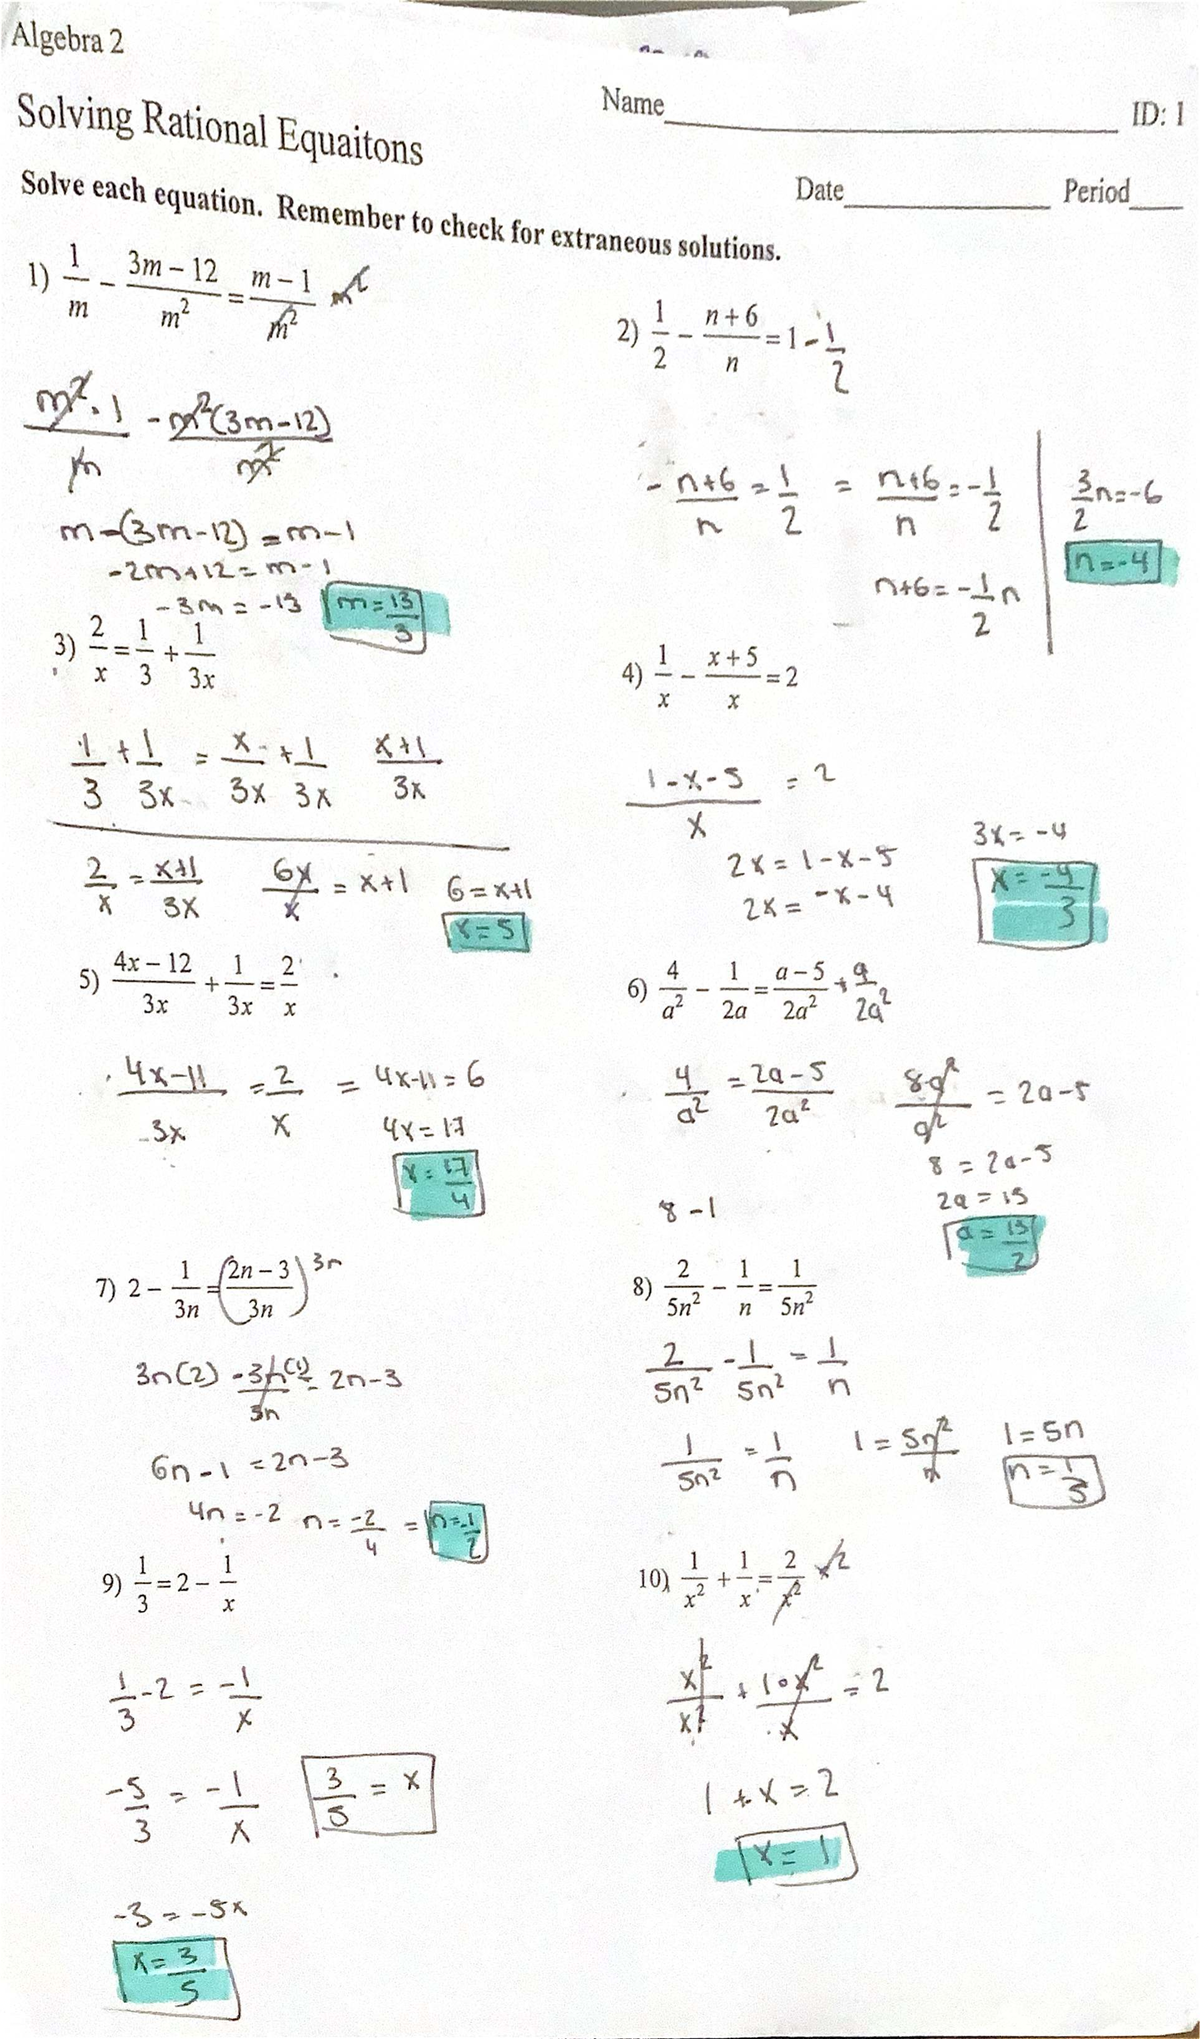 Algebra 2
Solving Rational Equaitons
Name
ID: 1
Date
Period
Solve each equation. Remember to check for extraneous solutions.
1) 1/m - (3m - 12)/m² = (m - 1)/m² m²
m²·1/m - m²(3m-12)/m²
m-(3m-12) = m-1
-2m+12 = m-1
-3m = -13 m = 13/3
2) 1/2 - (n + 6)/n = 1 - 1/2
- (n+6)/n = 1/2 = (n+6)/n = -1/2
n+6 = -1/2 n
3/2 n = -6
n = -4
3) 2/x = 1/3 + 1/3x
1/3 + 1/3x = x/3x + 1/3x (x+1)/3x
2/x = (x+1)/3x 6x/x = x+1 6 = x+1
x = 5
4) 1/x - (x + 5)/x = 2
(1-x-5)/x = 2
2x = 1-x-5
2x = -x-4
3x = -4
x = -4/3
5) (4x - 12)/3x + 1/3x = 2/x
(4x-11)/3x = 2/x = 4x-11 = 6
4x = 17
x = 17/4
6) 4/a² - 1/2a = (a - 5)/2a² + a/2a²
4/a² = (2a-5)/2a² 8a²/a² = 2a-5
8 = 2a-5
8-1
2a = 13
a = 13/2
7) 2 - 1/3n = ((2n - 3)/3n) 3n
3n(2) - 3n(1)/3n = 2n-3
6n-1 = 2n-3
4n = -2 n = -2/4 = n = -1/2
8) 2/5n² - 1/n = 1/5n²
2/5n² - 1/5n² = 1/n
1/5n² = 1/n 1 = 5n²/n 1 = 5n
n = 1/5
9) 1/3 = 2 - 1/x
1/3 - 2 = -1/x
-5/3 = -1/x 3/5 = x
-3 = -5x
x = 3/5
10) 1/x² + 1/x = 2/x² x²
x²/x² + 1·x²/x = 2
1 + x = 2
x = 1